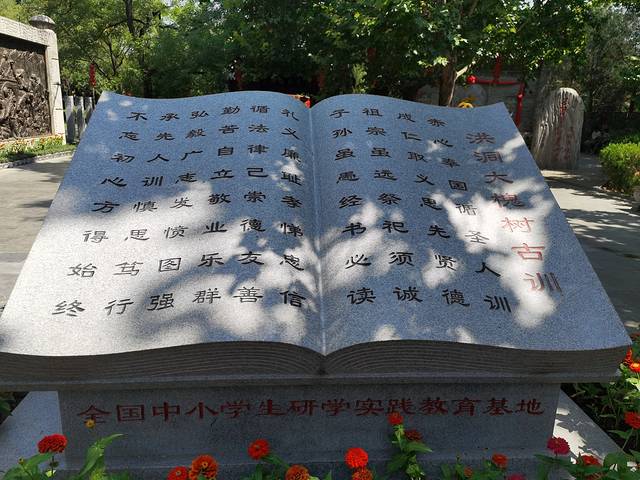 洪洞大槐树古训
赤心奉国循圣人训
成仁取义思先贤德
祖宗虽远祭祀须诚
子孙虽愚经书必读
礼义廉耻孝悌忠信
循法律己崇德友善
勤苦自立敬业乐群
弘毅广志发愤图强
承先人训慎思笃行
不忘初心方得始终
全国中小学生研学实践教育基地